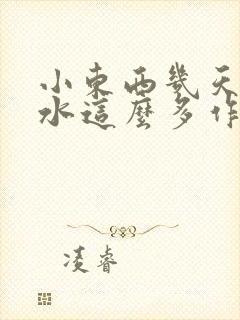 小東西幾天
水這麼多作
凌睿